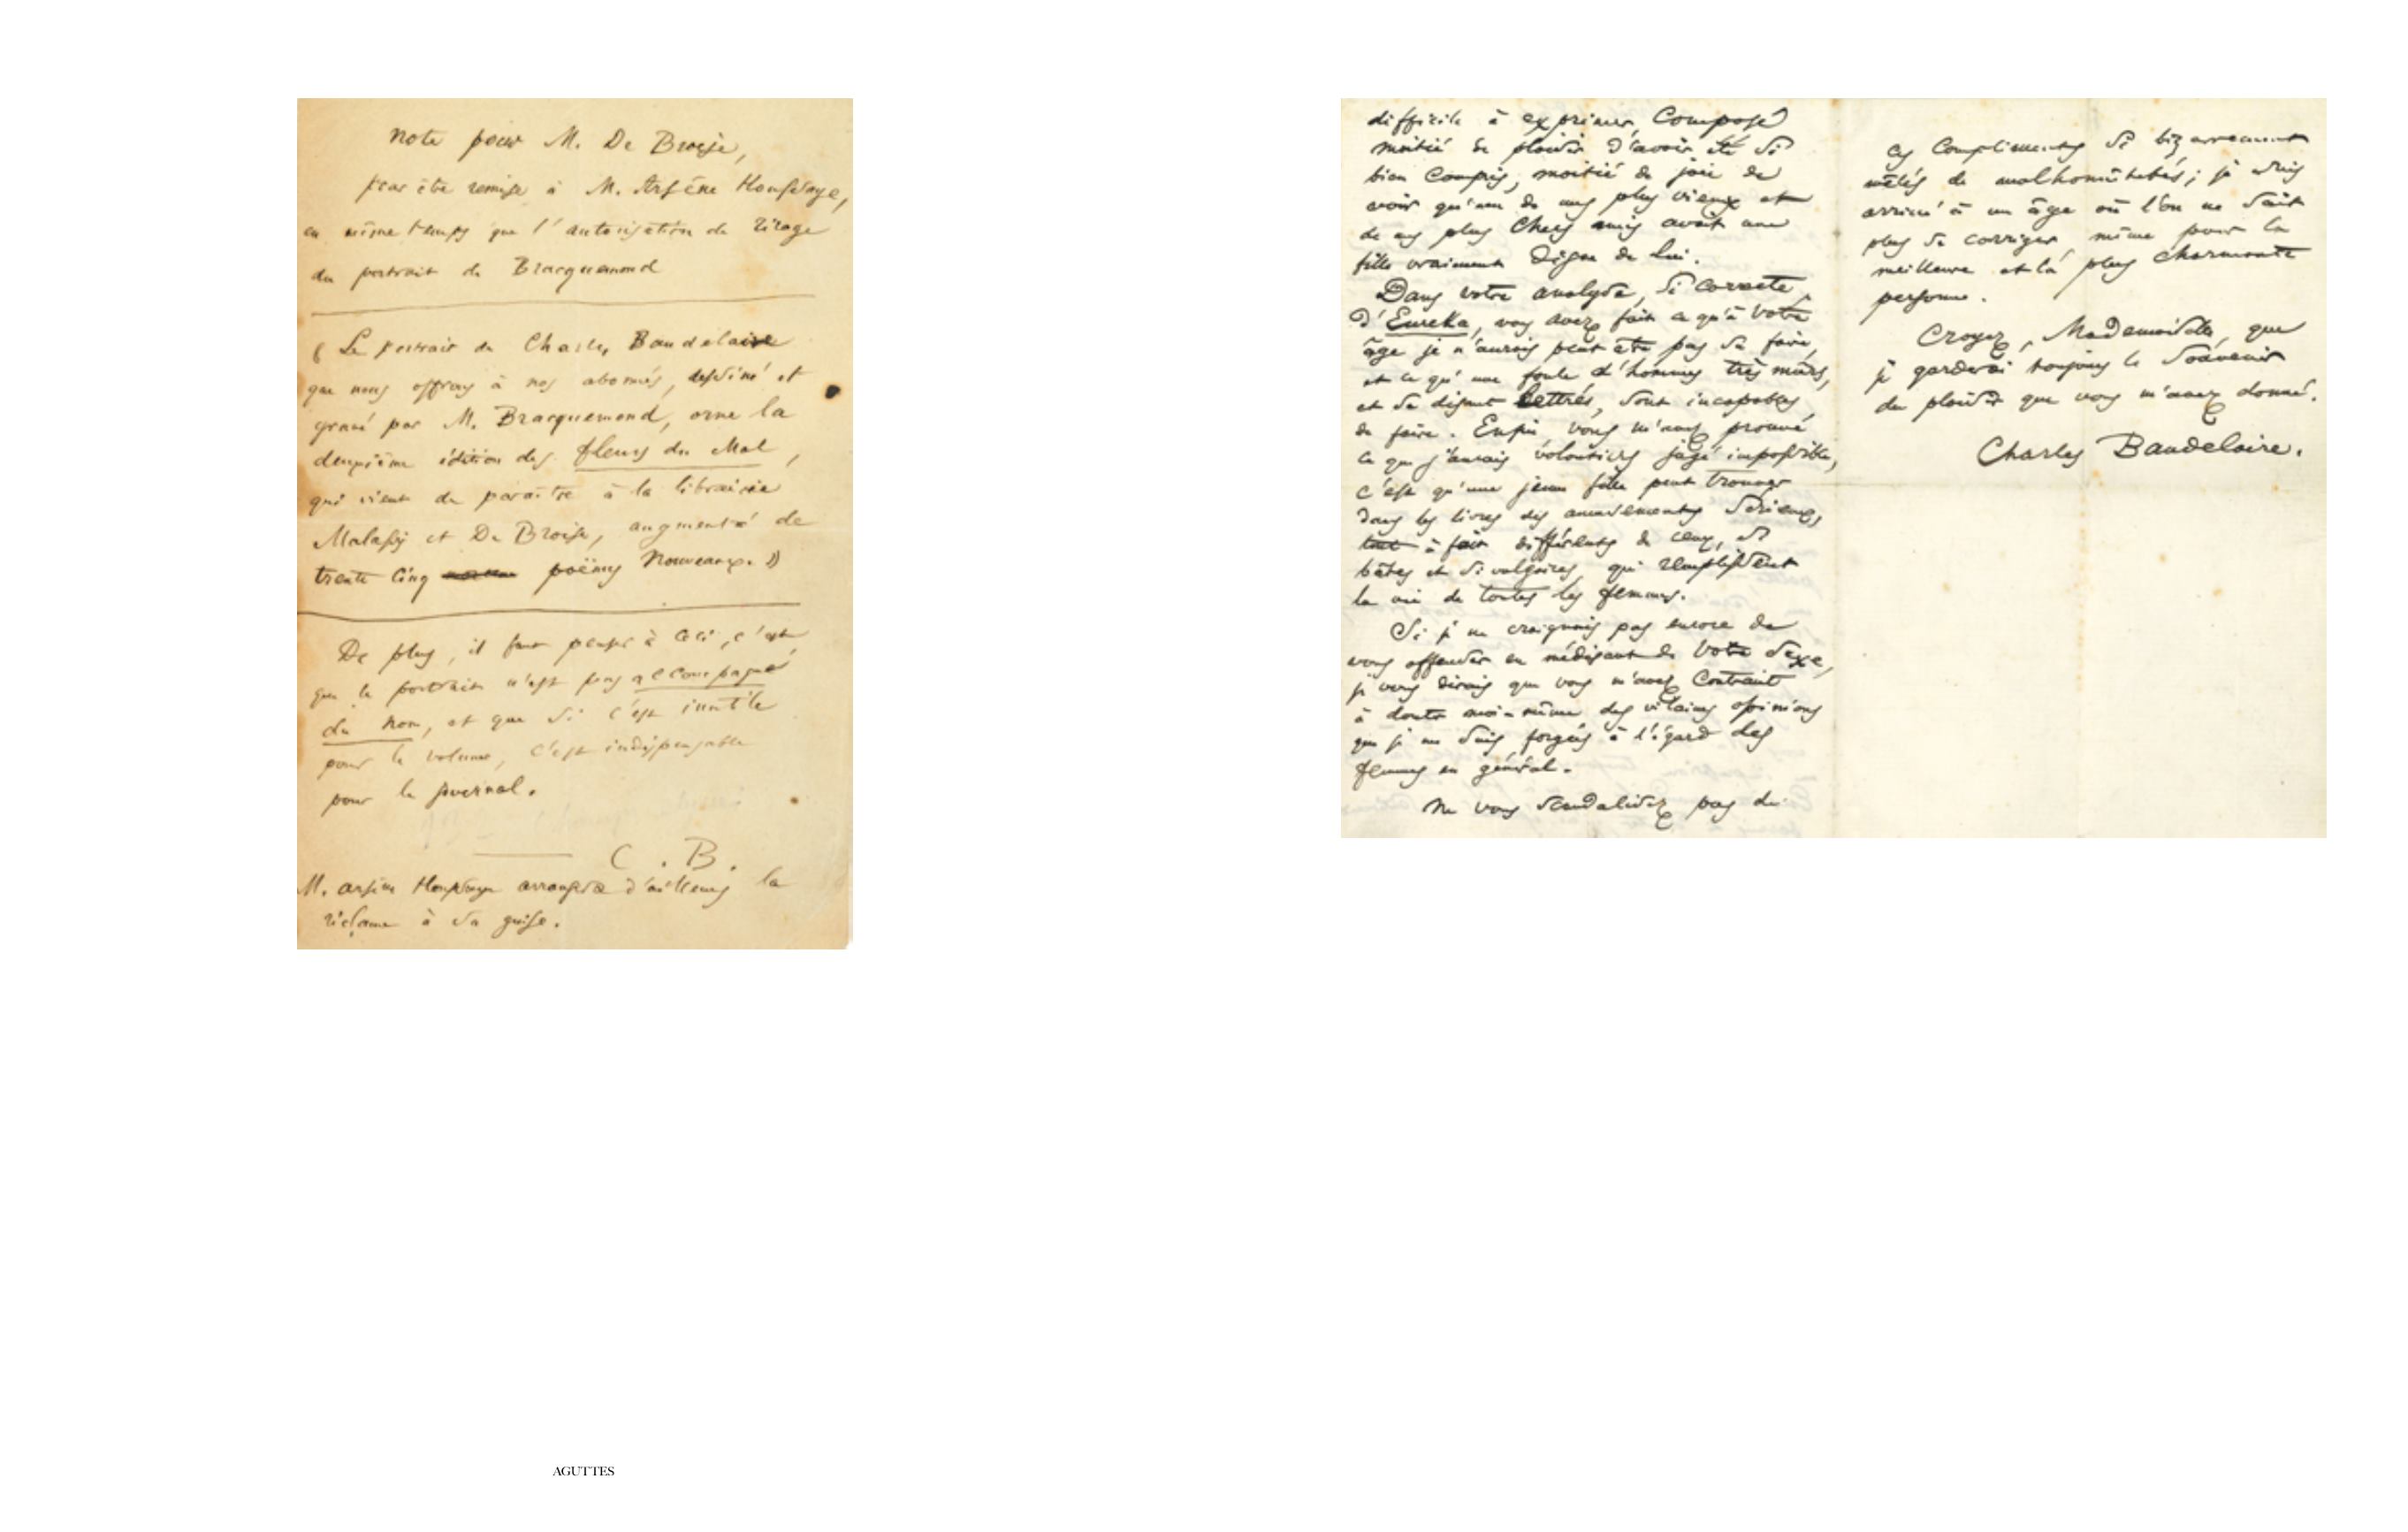 note pour M. De Broise,
pour être remise à M. Arsène Houssaye,
en même temps que l'autorisation de tirage
du portrait de Bracquemond
(Le portrait de Charles Baudelaire
que nous offrons à nos abonnés, dessiné et
gravé par M. Bracquemond, orne la
deuxième édition des fleurs du Mal,
qui vient de paraître à la librairie
Malassis et De Broise, augmentée de
trente cinq poëmes nouveaux.))
De plus, il faut penser à ceci, c'est
que le portrait n'est pas accompagné
du nom, et que si c'est inutile
pour le volume, c'est indispensable
pour le journal.
C. B.
M. arsène Houssaye arrangera d'ailleurs la
réclame à sa guise.
AGUTTES
difficile à exprimer, Composé
moitié de plaisir d'avoir été si
bien Compris, moitié de joie de
voir qu'un de mes plus vieux et
de mes plus Chers amis avait une
fille vraiment digne de lui.
Dans votre analyse, si correcte,
d'Eureka, vous avez fait ce qu'à votre
âge je n'aurais peut être pas su faire,
et ce qu'une foule d'hommes très mûrs,
et se disant lettrés, sont incapables
de faire. Enfin, vous m'avez prouvé
ce que j'aurais volontiers jugé impossible,
c'est qu'une jeune fille peut trouver
dans les livres des amusements sérieux,
tout à fait différents de ceux, si
bêtes et si vulgaires, qui remplissent
la vie de toutes les femmes.
Si je ne craignais pas encore de
vous offenser en médisant de votre sexe,
je vous dirais que vous m'avez Contraint
à douter moi-même des vilaines opinions
que je me suis forgées à l'égard des
femmes en général.
Ne vous scandalisez pas de
ces Compliments si bizarrement
mêlés de malhonnêtetés; je suis
arrivé à un âge où l'on ne sait
plus se corriger, même pour la
meilleure et la plus charmante
personne.
Croyez, Mademoiselle, que
je garderai toujours le souvenir
du plaisir que vous m'avez donné.
Charles Baudelaire.